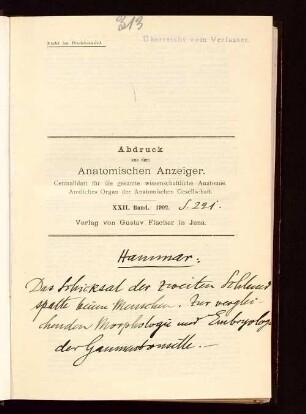 313
Nicht im Buchhandel.
Überreicht vom Verfasser.
Abdruck
aus dem
Anatomischen Anzeiger.
Centralblatt für die gesamte wissenschaftliche Anatomie.
Amtliches Organ der Anatomischen Gesellschaft.
XXII. Band. 1902. S. 221.
Verlag von Gustav Fischer in Jena.
Hammar:
Das Schicksal der zweiten Schlund
spalte beim Menschen. Zur verglei-
chenden Morphologie und Embryologie
der Gaumentonsille.—